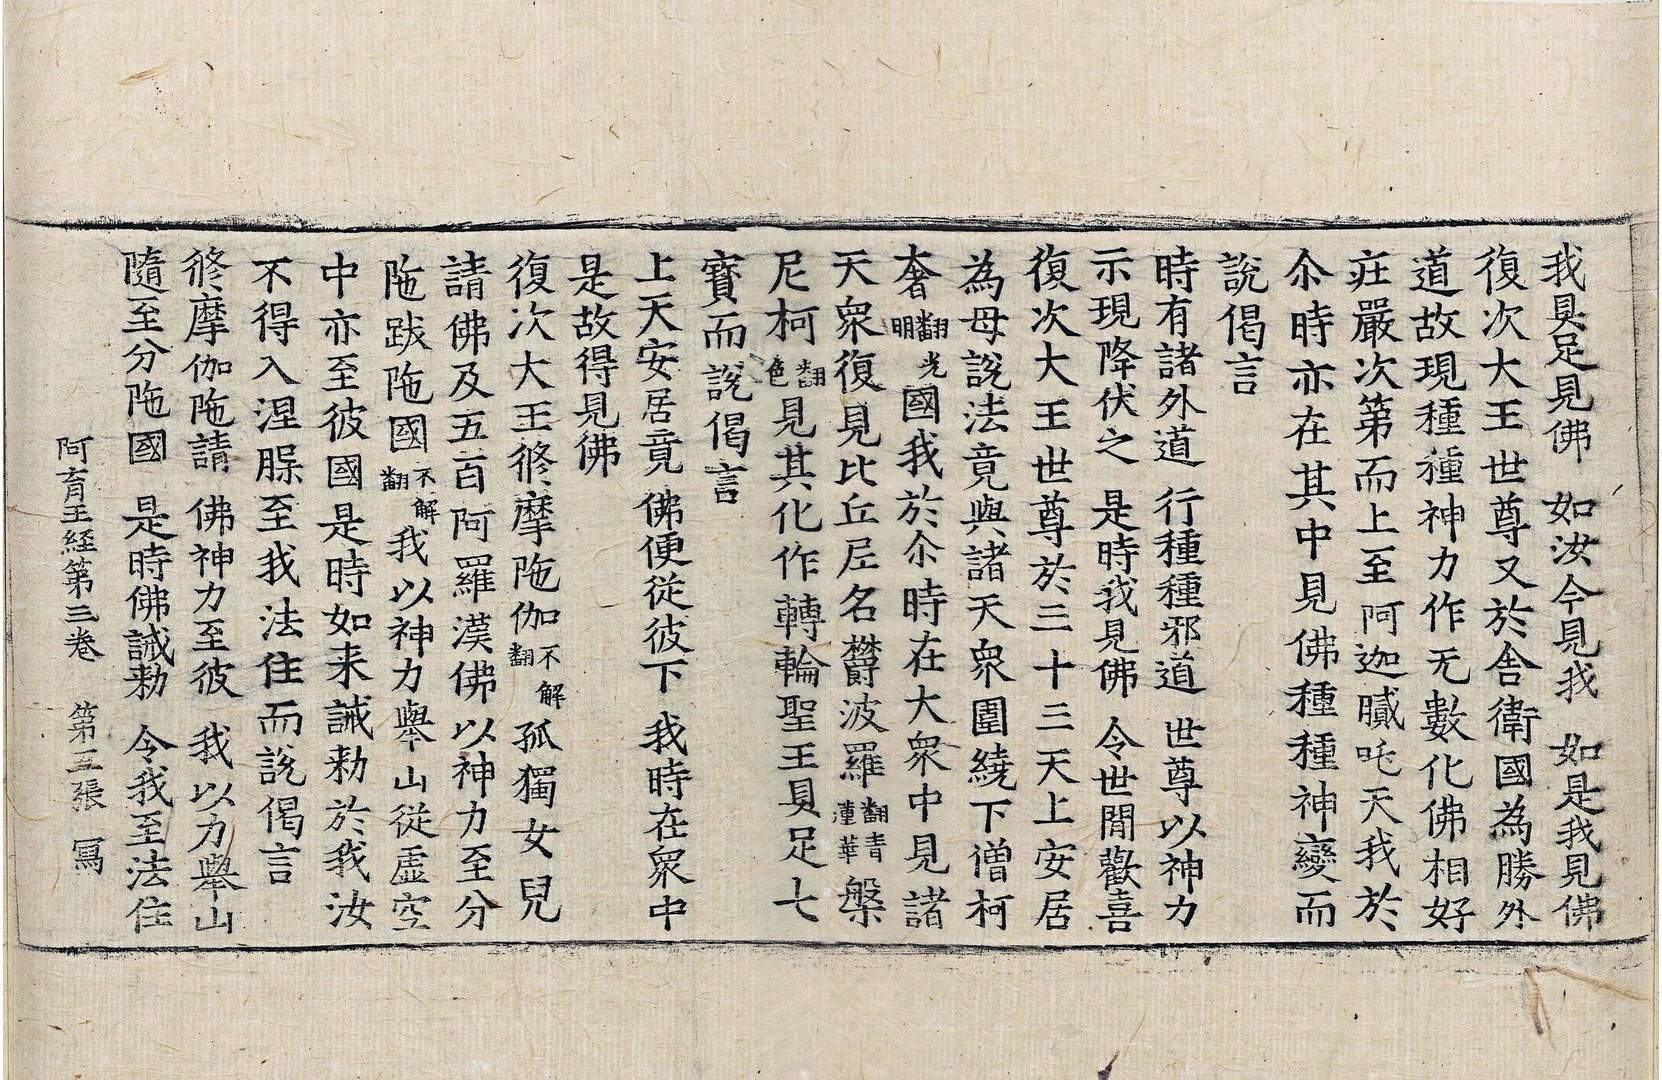 我具足見佛 如汝今見我 如是我見佛
復次大王世尊又於舍衛國為勝外
道故現種種神力作无數化佛相好
庄嚴次第而上至阿迦膩吒天我於
尒時亦在其中見佛種種神變而
說偈言
時有諸外道 行種種邪道 世尊以神力
示現降伏之 是時我見佛 令世間歡喜
復次大王世尊於三十三天上安居
為母說法竟與諸天眾圍繞下僧柯
奢翻光明國我於尒時在大眾中見諸
天眾復見比丘尼名欝波羅翻青蓮華槃
尼柯翻色見其化作轉輪聖王具足七
寶而說偈言
上天安居竟 佛便從彼下 我時在眾中
是故得見佛
復次大王修摩陁伽不解翻孤獨女兒
請佛及五百阿羅漢佛以神力至分
陁跋陁國不解翻我以神力舉山從虛空
中亦至彼國是時如来誡勑於我汝
不得入涅槃至我法住而說偈言
修摩伽陁請 佛神力至彼 我以力舉山
隨至分陁國 是時佛誡勑 令我至法住
阿育王経第三卷 第五張 冩